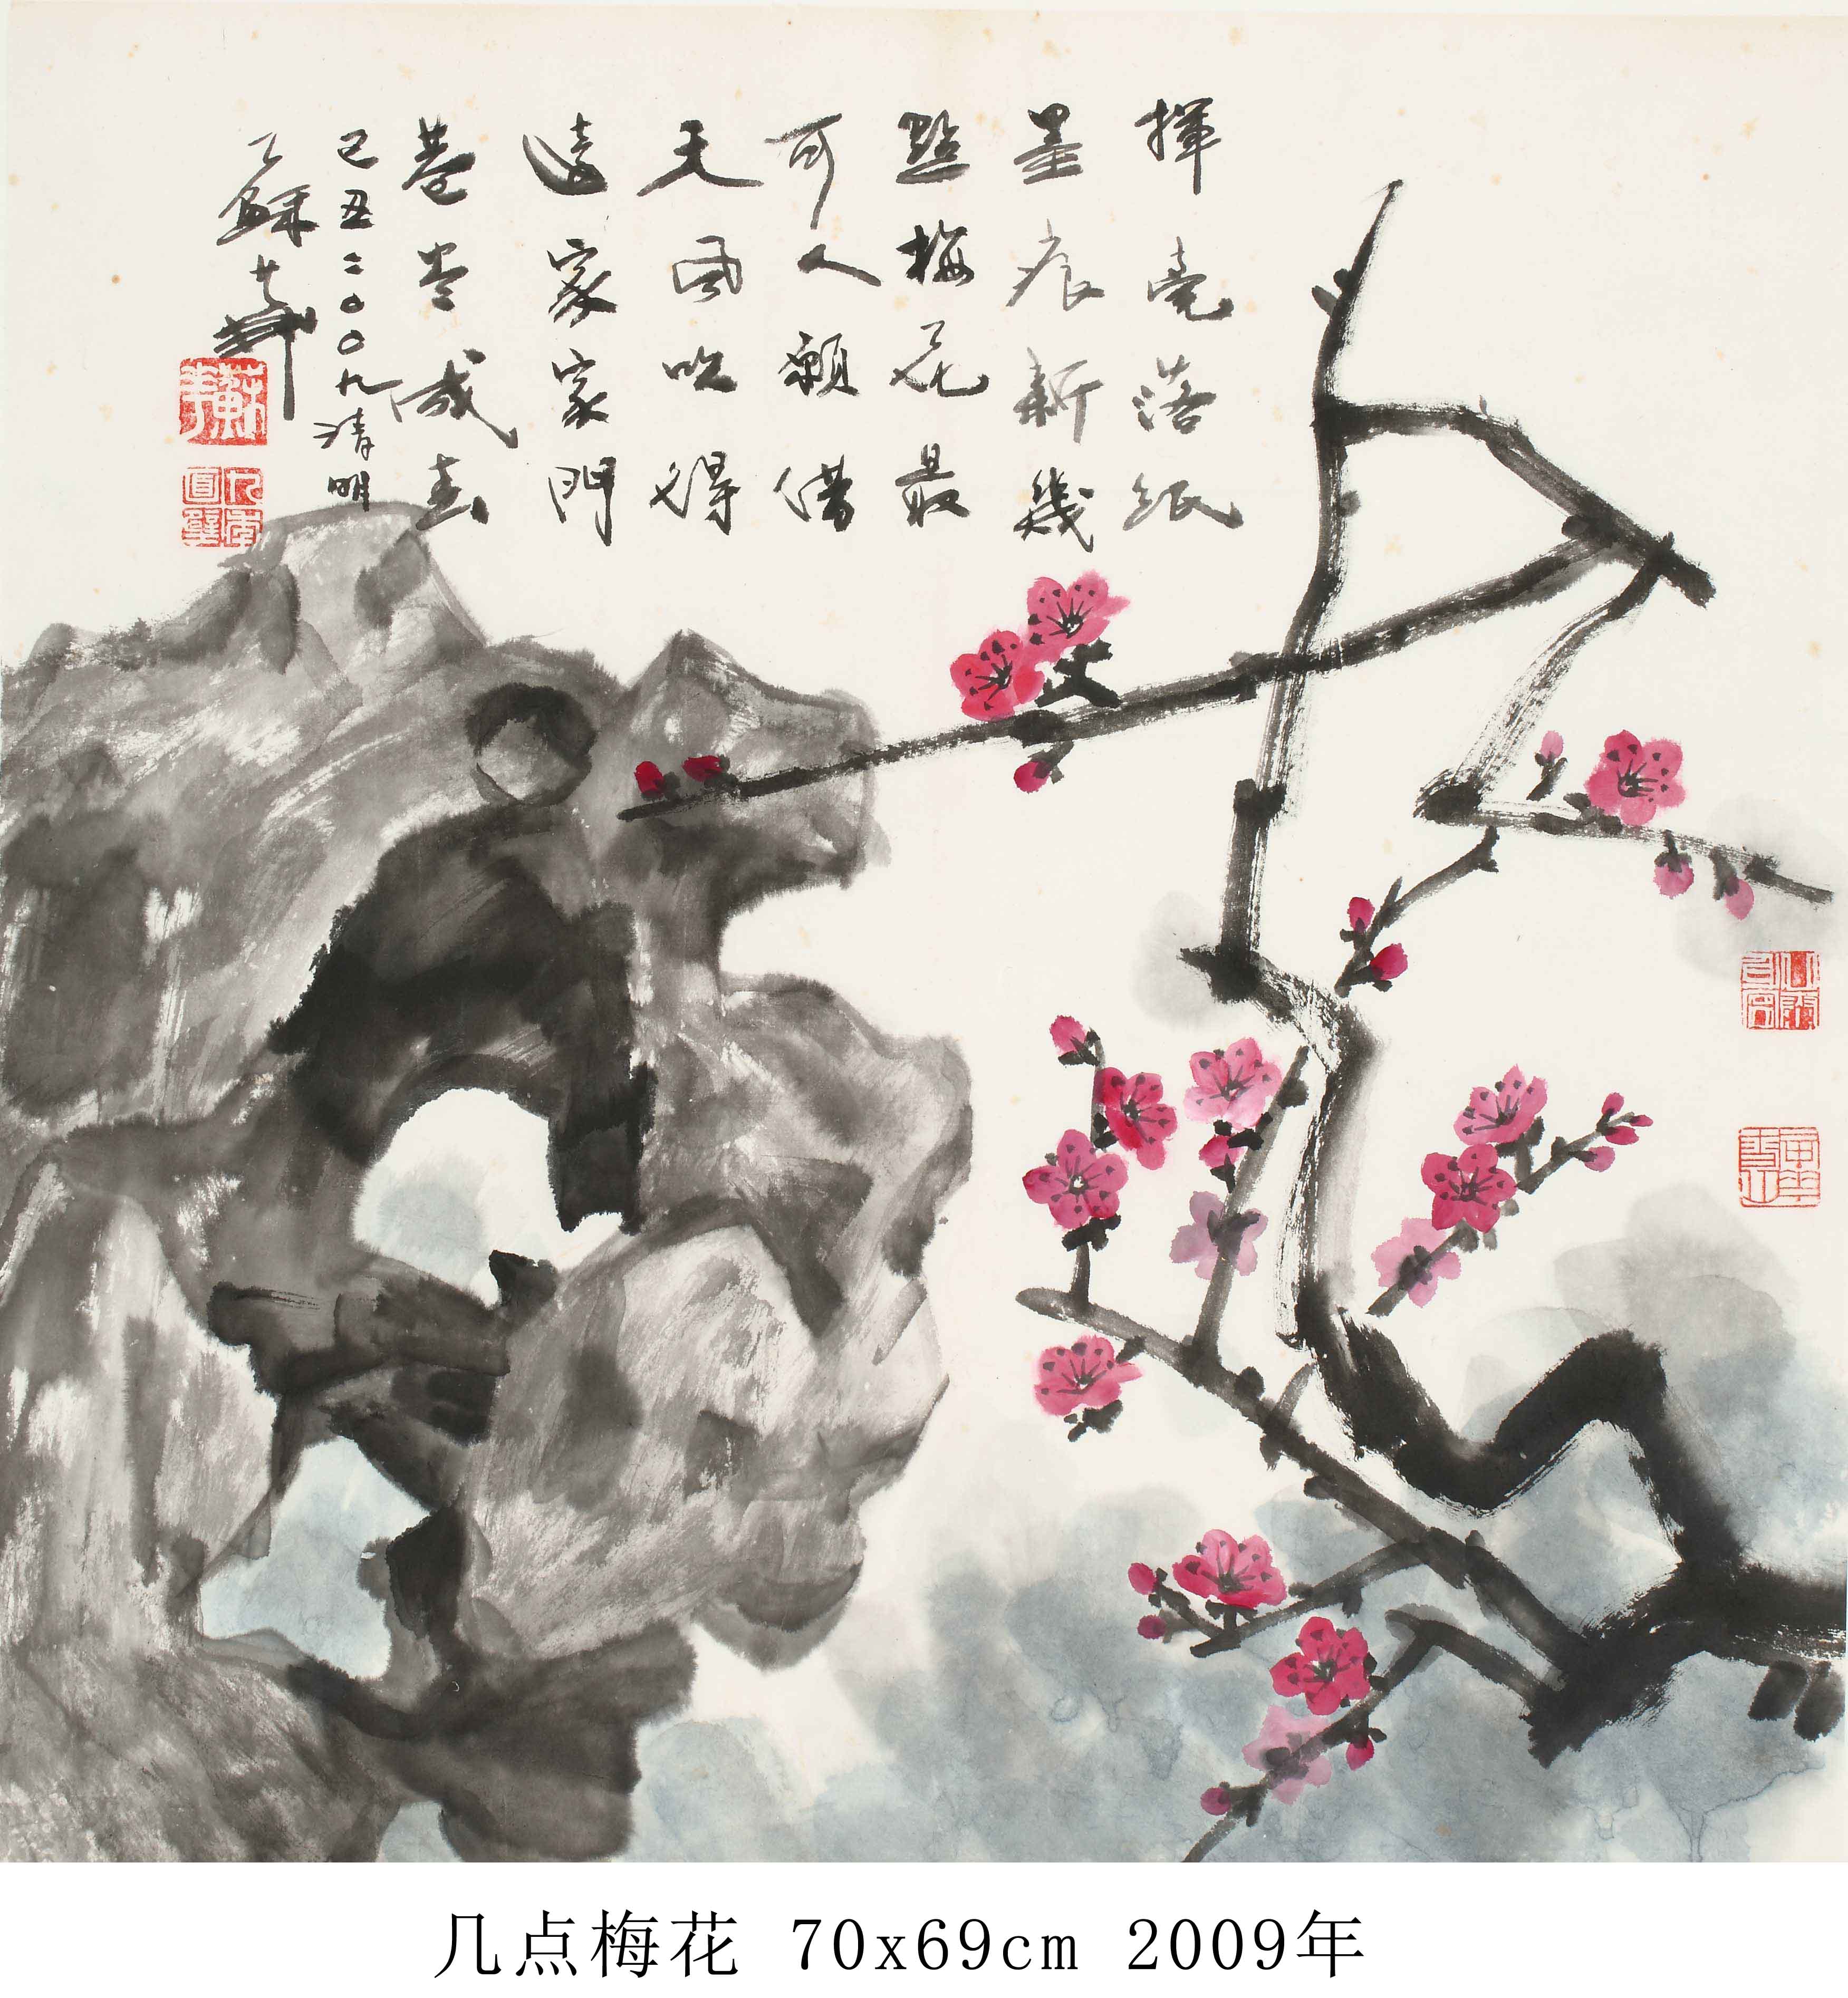 揮毫落紙
墨痕新幾
點梅花最
可人願借
天風吹得
遠家家門
巷盡成春
己丑二〇〇九清明
蘇華
几点梅花 70x69cm 2009年